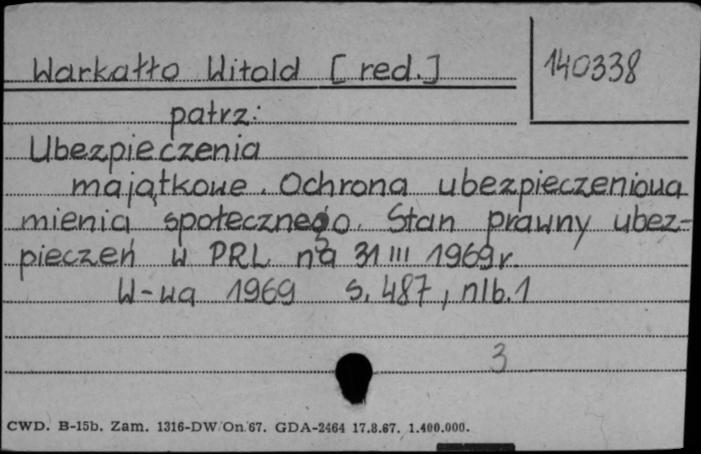 Warkałło Witold [red.]
140338
patrz:
Ubezpieczenia
majątkowe. Ochrona ubezpieczeniowa
mienia społecznego. Stan prawny ubez-
pieczeń w PRL na 31 III 1969 r.
W-wa 1969 s. 487, nlb. 1
3
CWD. B-15b. Zam. 1316-DW/On.67. GDA-2464 17.8.67. 1.400.000.